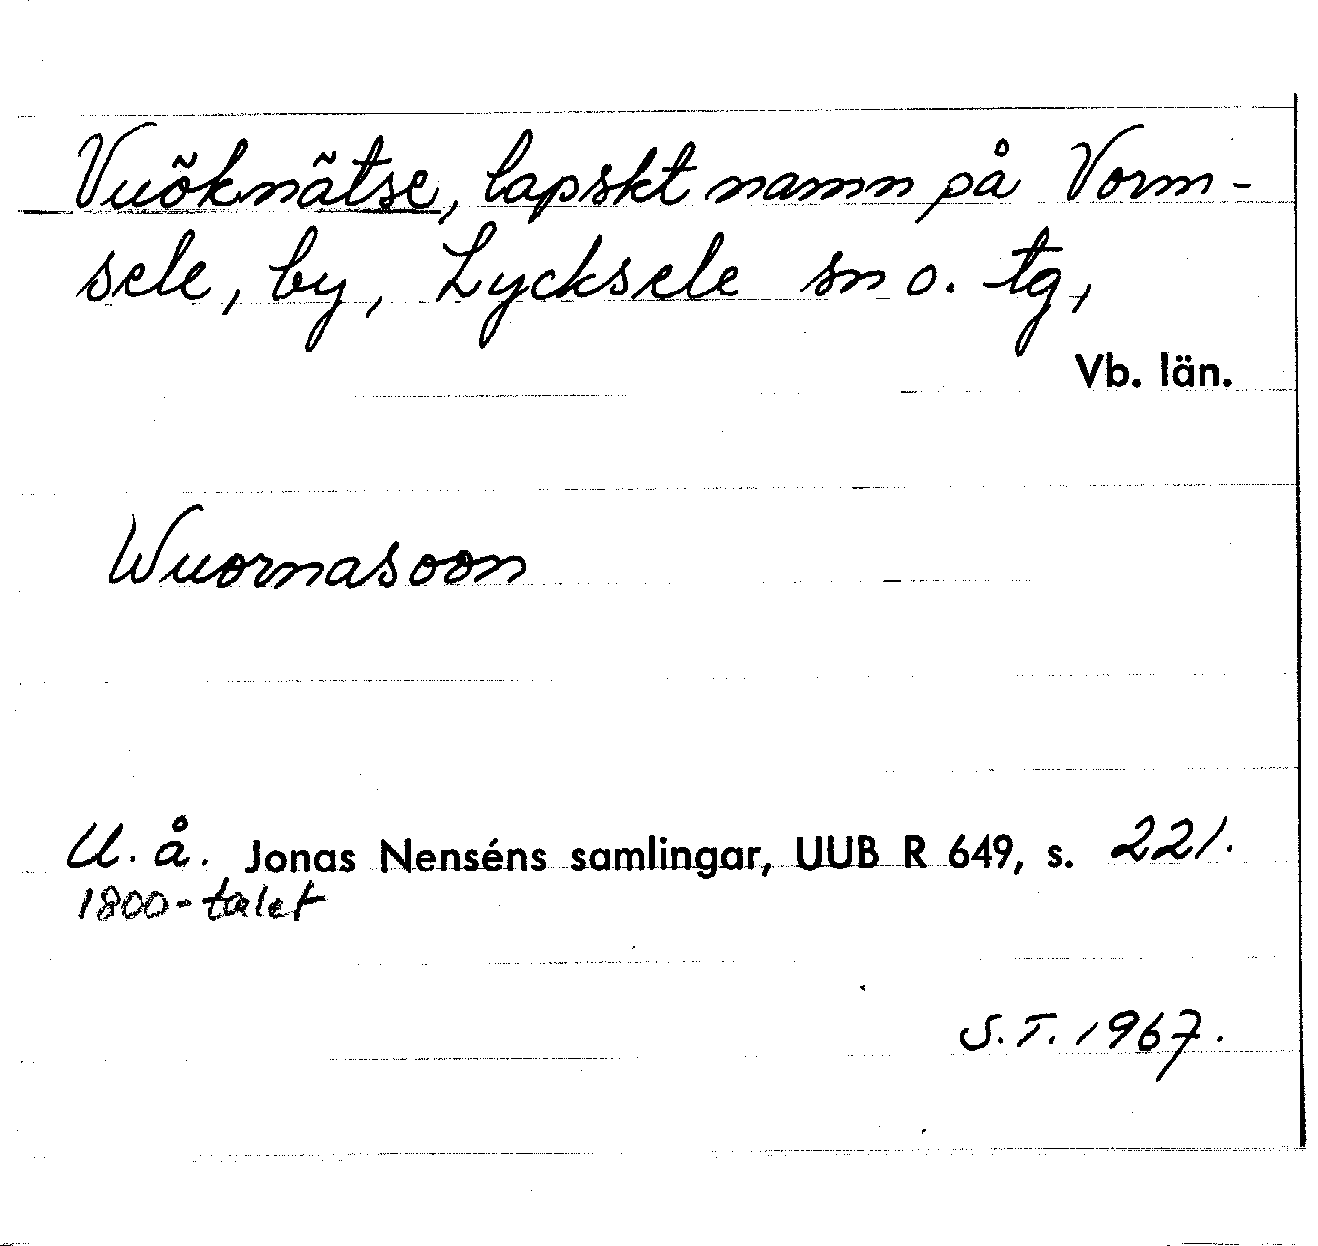 Vuõknãtse, lapskt namn på Vorm-
sele, by, Lycksele sn o. tg,
Vb. län.
Wuornasoon
U. å. Jonas Nenséns samlingar, UUB R 649, s. 221.
1800-talet
S.T. 1967.